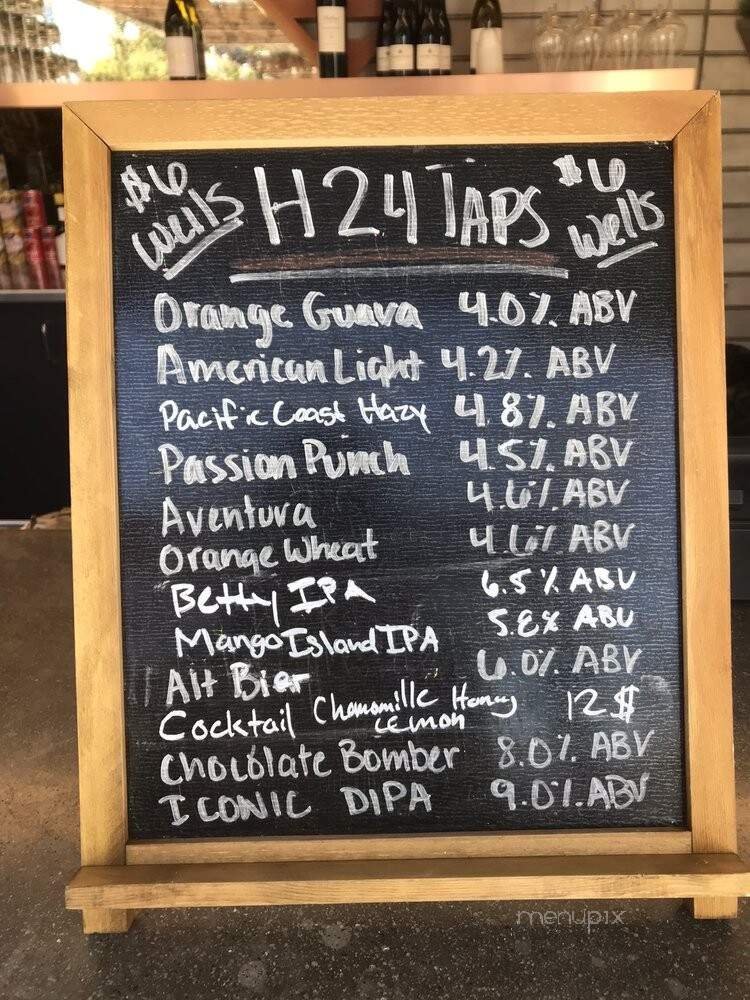 $6 Wells H24 TAPS $6 Wells
Orange Guava 4.0% ABV
American Light 4.2% ABV
Pacific Coast Hazy 4.8% ABV
Passion Punch 4.5% ABV
Aventura 4.6% ABV
Orange Wheat 4.6% ABV
Betty IPA 6.5% ABV
Mango Island IPA 5.8% ABV
Alt Bier 6.0% ABV
Cocktail Chamomille Honey Lemon 12$
Chocolate Bomber 8.0% ABV
ICONIC DIPA 9.0%.ABV
menupix